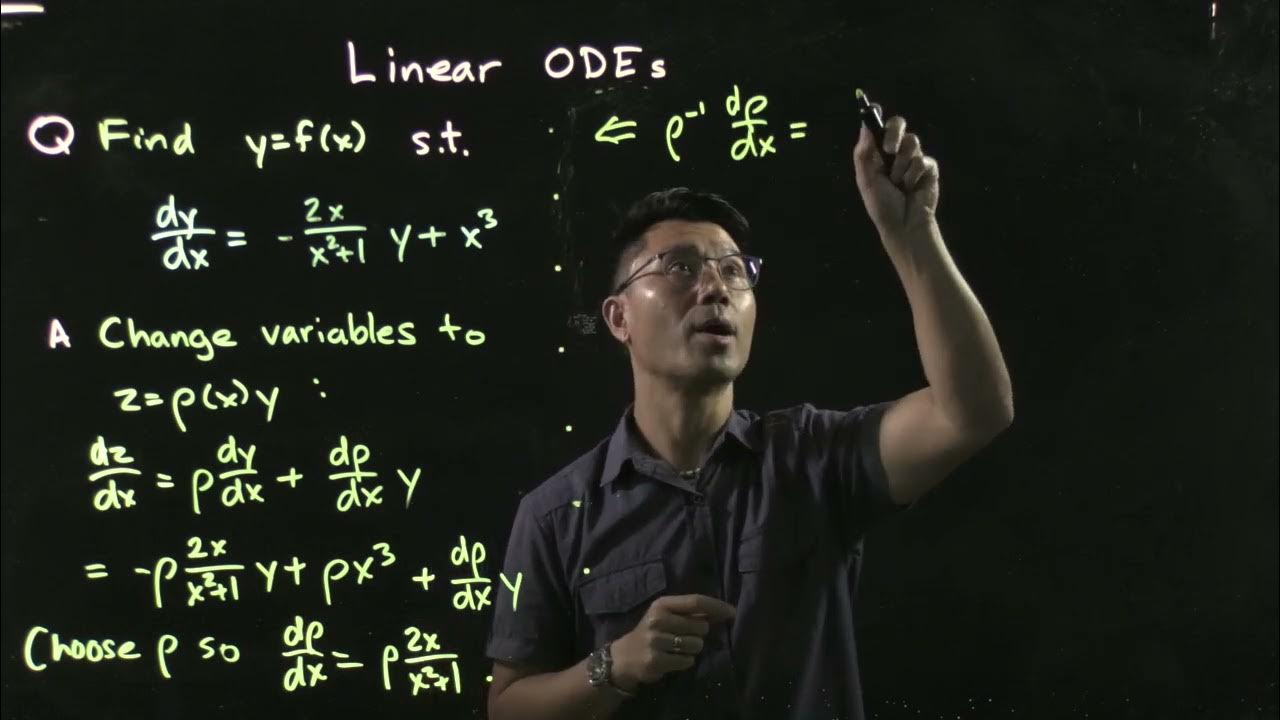 Linear ODEs
Q Find y=f(x) s.t.
dy/dx = - 2x/(x²+1) y + x³
A Change variables to
z=ρ(x)y :
dz/dx = ρ dy/dx + dρ/dx y
= -ρ 2x/(x²+1) y + ρx³ + dρ/dx y
Choose ρ so dρ/dx = ρ 2x/(x²+1).
⇐ ρ⁻¹ dρ/dx =